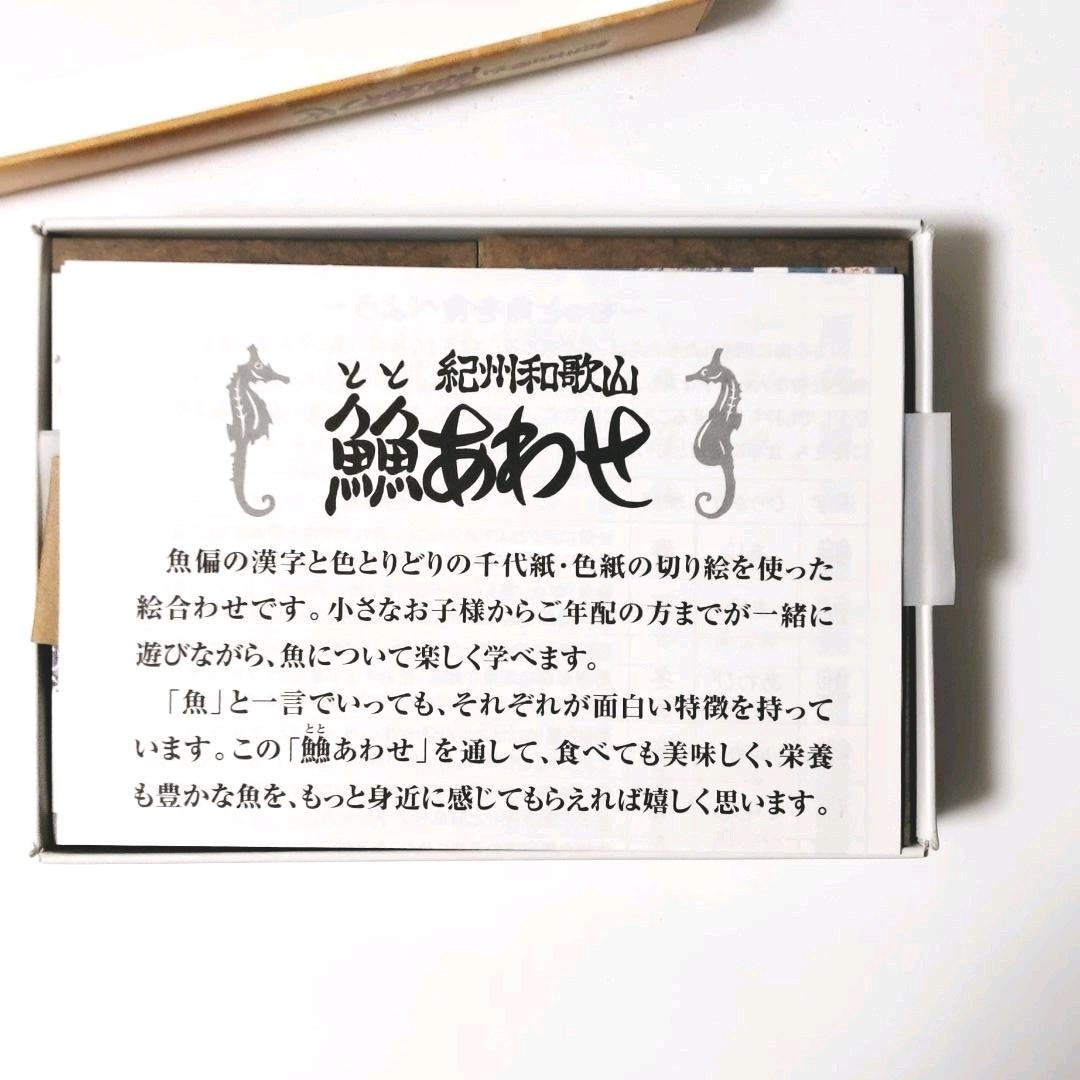 紀州和歌山
とと
𩺰あわせ
魚偏の漢字と色とりどりの千代紙・色紙の切り絵を使った
絵合わせです。小さなお子様からご年配の方までが一緒に
遊びながら、魚について楽しく学べます。
「魚」と一言でいっても、それぞれが面白い特徴を持って
とと
います。この「𩺰あわせ」を通して、食べても美味しく、栄養
も豊かな魚を、もっと身近に感じてもらえれば嬉しく思います。